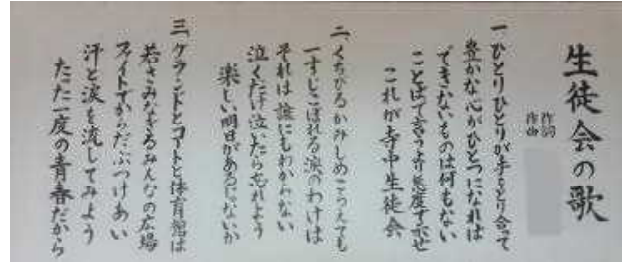 生徒会の歌
作詞
作曲
一、ひとりひとりが手をとり合って
豊かな心がひとつになれば
できないものは何もない
ことばで言うより態度で示せ
これが寺中生徒会
二、くちびるかみしめこらえても
一すじこぼれる涙のわけは
それは誰にもわからない
泣くだけ泣いたら忘れよう
楽しい明日があるじゃないか
三、グランドとコートと体育館は
若さみなぎるみんなの広場
ファイトでからだぶつけあい
汗と涙を流してみよう
たった一度の青春だから